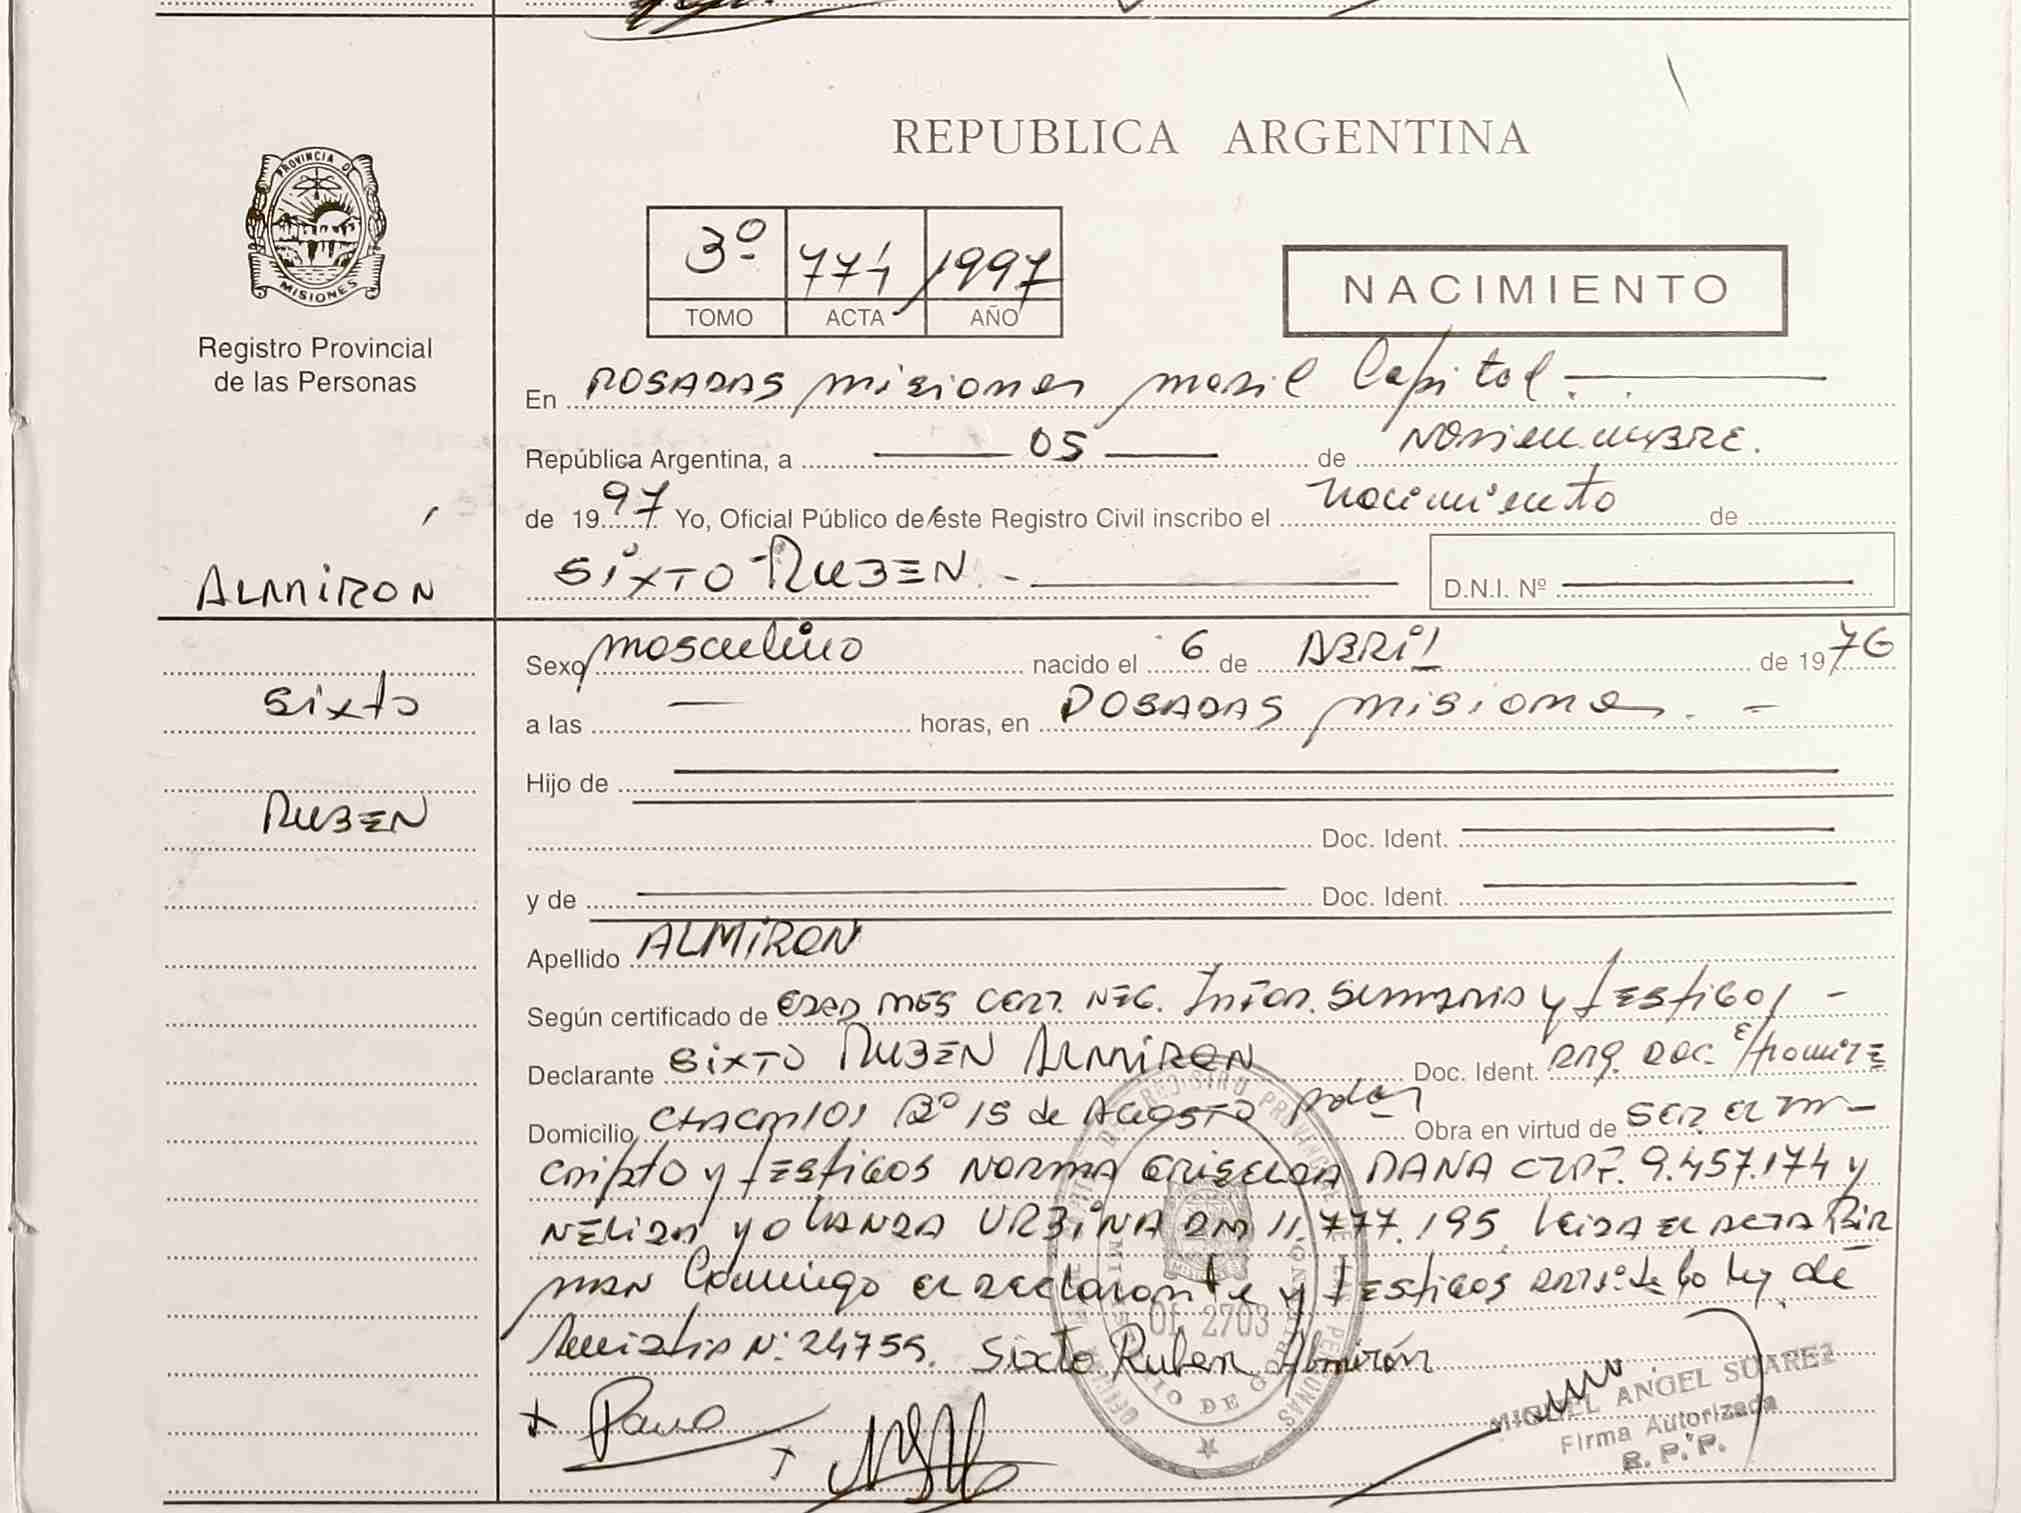 REPUBLICA ARGENTINA
PROVINCIA DE
MISIONES
Registro Provincial
de las Personas
3º 774 1997
TOMO ACTA AÑO
NACIMIENTO
En POSADAS misiones Capital
República Argentina, a 05 de NOVIEMBRE.
de 1997 Yo, Oficial Público de este Registro Civil inscribo el nacimiento de
SIXTO RUBEN.- D.N.I. Nº
ALMIRON
SIXTO
RUBEN
Sexo masculino nacido el 6 de ABRIL de 1976
a las — horas, en POSADAS misiones. -
Hijo de
Doc. Ident.
y de Doc. Ident.
Apellido ALMIRON
Según certificado de CERT. NEG. Infor. Sumaria y testigos -
Declarante SIXTO RUBEN ALMIRON Doc. Ident.
Domicilio CHACRA 101 Bº 15 de AGOSTO Pdas Obra en virtud de SER EL IN-
cripto y testigos NORMA GRISELDA DANA 9.457.174 y
NELIDA YOLANDA URBINA DNI 11.777.195. Leida el acta FIR
MAN Conmigo el declarante y testigos ley de
Amistia Nº 24755. Sixto Ruben Almirón
OF 2703
MIGUEL ANGEL SUAREZ
Firma Autorizada
R. P. P.